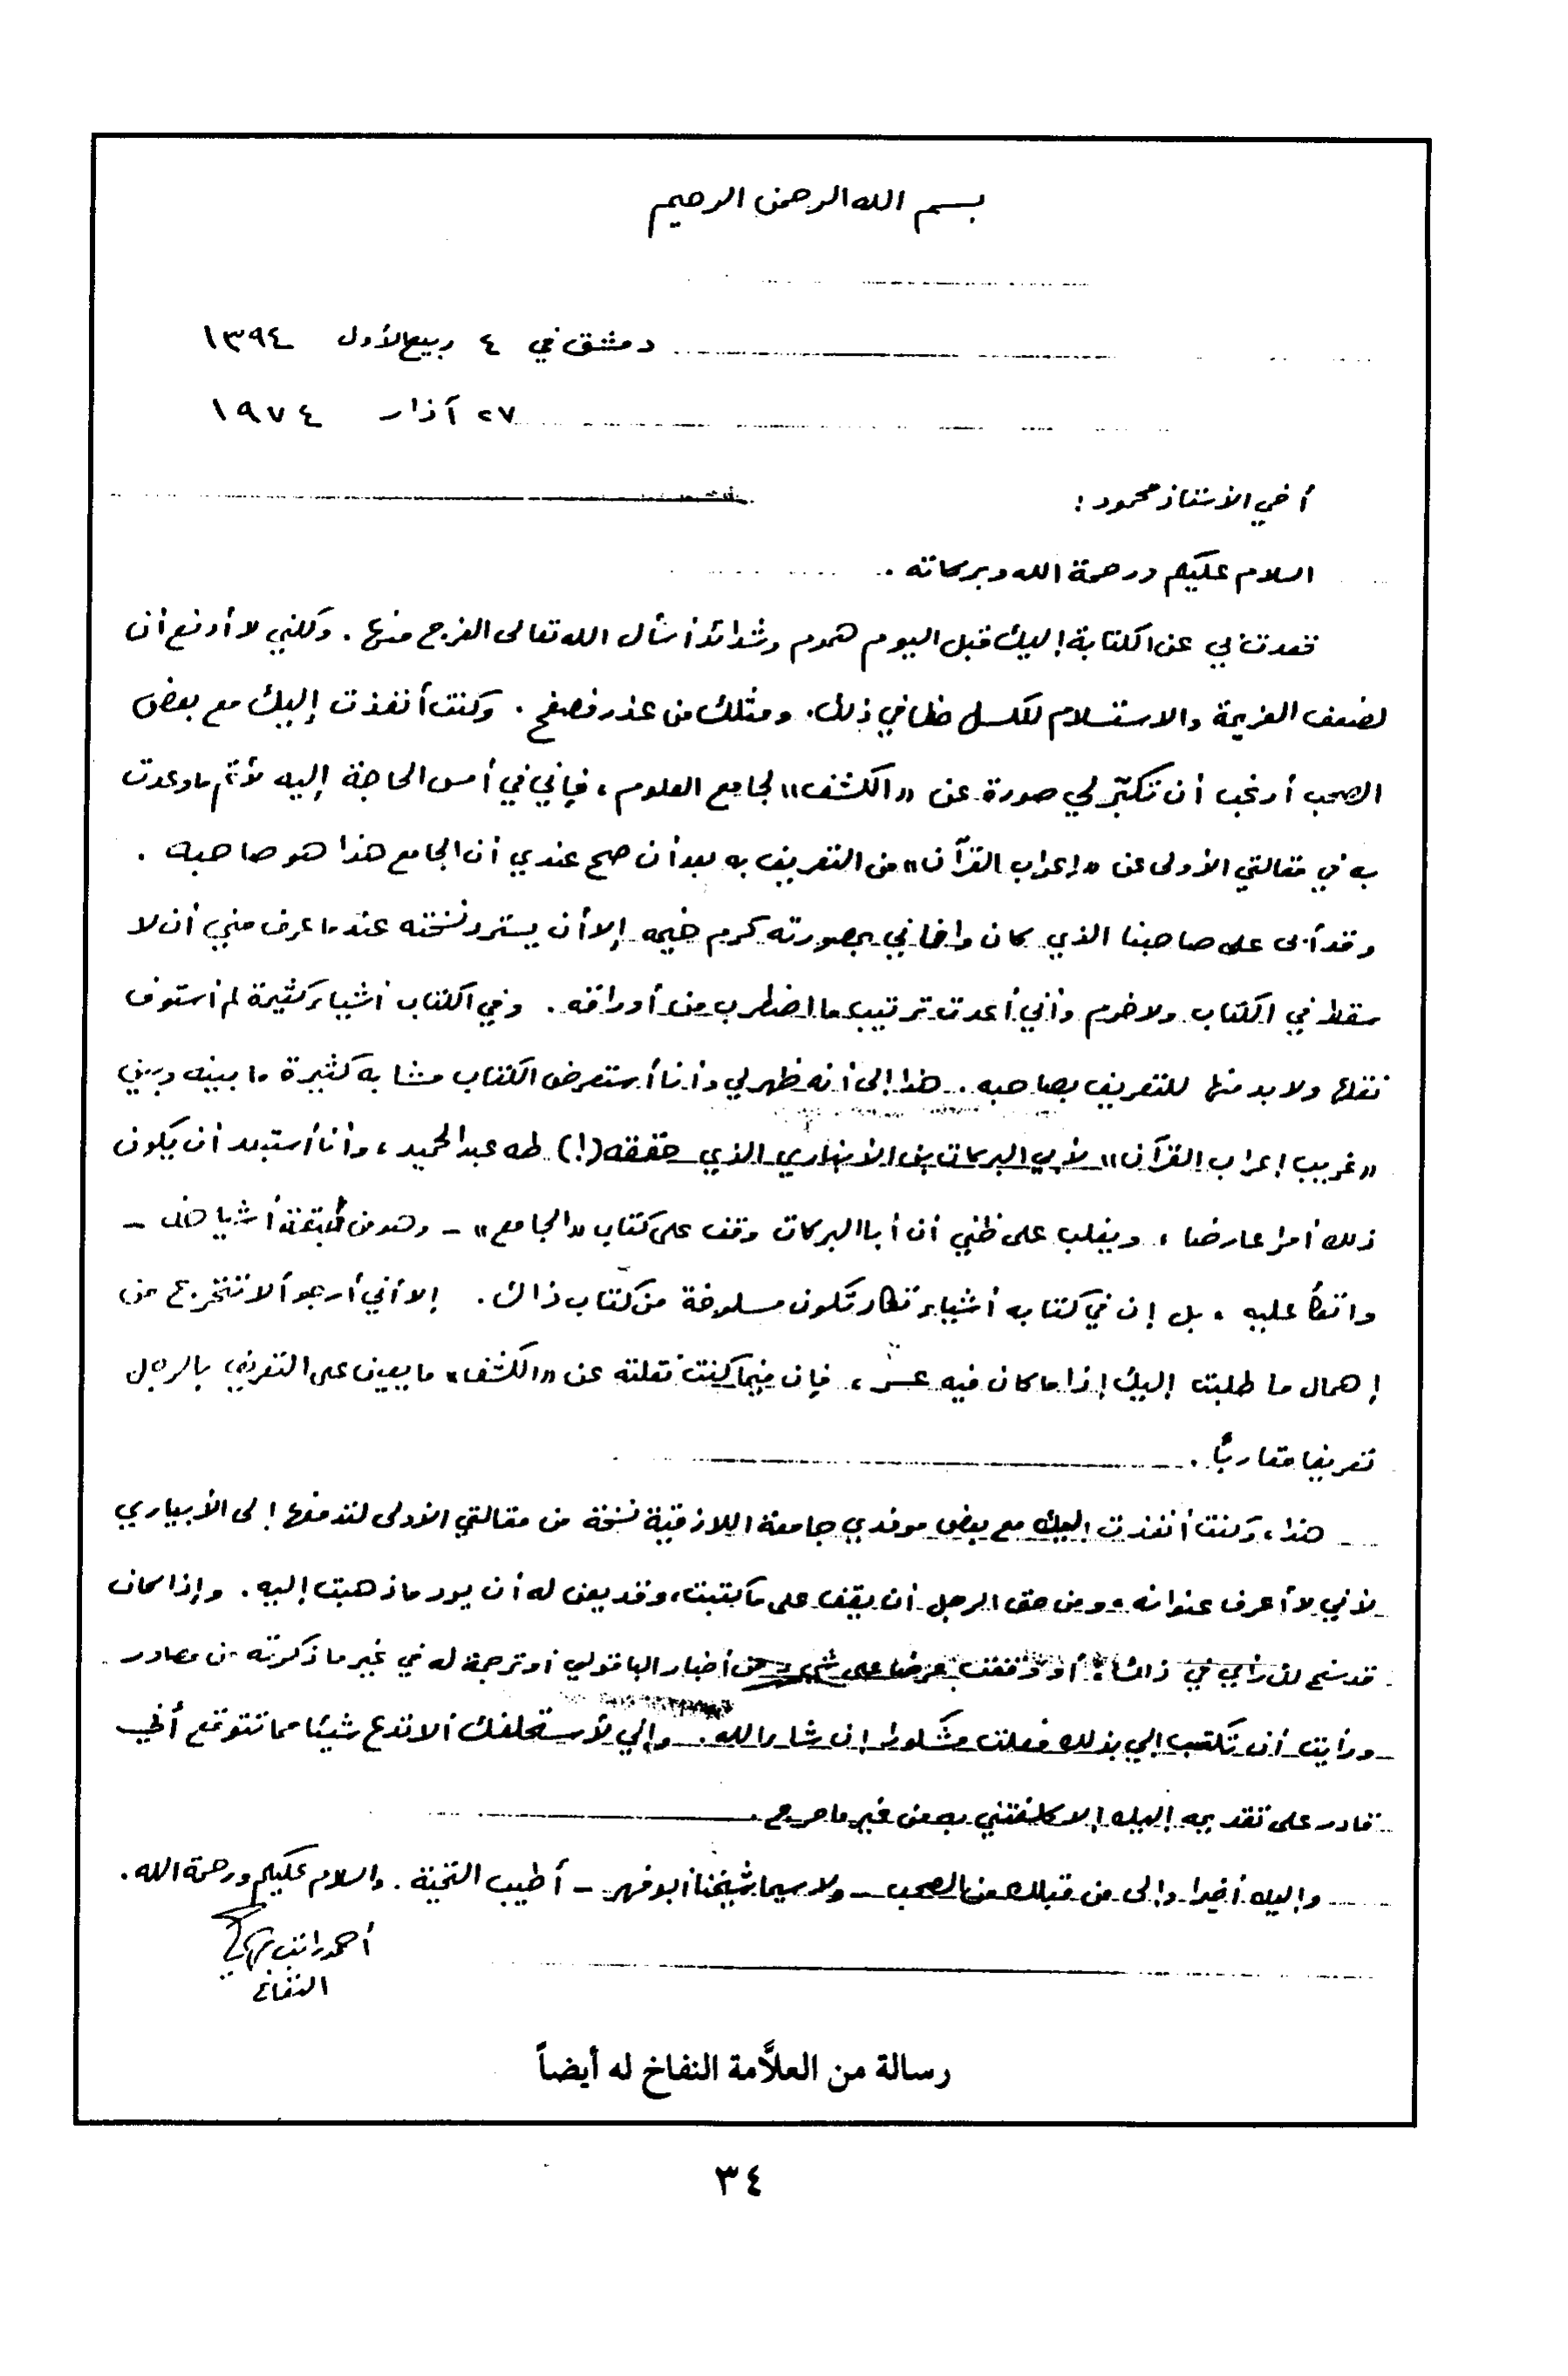 بسم الله الرحمن الرحيم
دمشق في ٤ ربيع الأول ١٣٩٤
٢٧ آذار ١٩٧٤
أخي الأستاذ محمود :
السلام عليكم ورحمة الله وبركاته .
قعدت بي عن الكتابة إليك قبل اليوم هموم وشدائد أسأل الله تعالى الفرج منها . ولكنني لا أدفع أن
لضعف العزيمة والاستسلام للكسل حظا في ذلك . ومثلك من عذر فصفح . وكنت أنفذت إليك مع بعض
الصحب أرغب أن تكبّر لي صورة عن «الكشف» لجامع العلوم ، فإني في أمس الحاجة إليه لأتم ما وعدت
به في مقالتي الأولى عن «إعراب القرآن» من التعريف به بعد أن صح عندي أن الجامع هذا هو صاحبه .
وقد أبى على صاحبنا الذي كان وافاني بصورته كرم خيمه إلا أن يسترد نسخته عندما عرف مني أن لا
سقط في الكتاب ولا خرم وأني أعدت ترتيب ما اضطرب من أوراقه . وفي الكتاب أشياء كثيرة لم أستوف
نقلها ولا بد منها للتعريف بصاحبه . هذا إلى أنه ظهر لي وأنا أستعرض الكتاب مشابه كثيرة ما بينه وبين
«غريب إعراب القرآن» لأبي البركات بن الأنباري الذي حققه (!) طه عبد الحميد ، وأنا أستبعد أن يكون
ذلك أمرا عارضا ، ويغلب على ظني أن أبا البركات وقف على كتاب «الجامع» – وهو من طبقة أشياخه –
واتكأ عليه ، بل إن في كتابه أشياء تكاد تكون مسلوخة من كتاب ذاك . إلا أني أرجو ألا تتحرج من
إهمال ما طلبت إليك إذا ما كان فيه عسر ، فإن فيما كنت نقلته عن «الكشف» ما يعين على التعريف بالرجل
تعريفا مقاربًا .
هذا ، وكنت أنفذت إليك مع بعض موفدي جامعة اللاذقية نسخة من مقالتي الأولى لتدفعها إلى الأبياري
لأني لا أعرف عنوانه ، ومن حق الرجل أن يقف على ما كتبت ، وقد يعن له أن يرد ما ذهبت إليه . وإذا كان
قد سنح لك رأي في ذلك ، أو وقفت عرضا على شيء من أخبار الباقولي أو ترجمة له في غير ما ذكرته من مصادر
ورأيت أن تكتب إلي بذلك فعلت مشكورا إن شاء الله . وإني لأستحلفك ألا تدع شيئا مما تتوقع أني
قادر على تقديمه إليك إلا كلفتني بعض غير ما حرج .
وإليك أخيرا وإلى من قبلك من الصحب – ولا سيما شيخنا أبو فهر – أطيب التحية . والسلام عليكم ورحمة الله .
أحمد راتب
النفاخ
رسالة من العلاَّمة النفاخ له أيضاً
٣٤